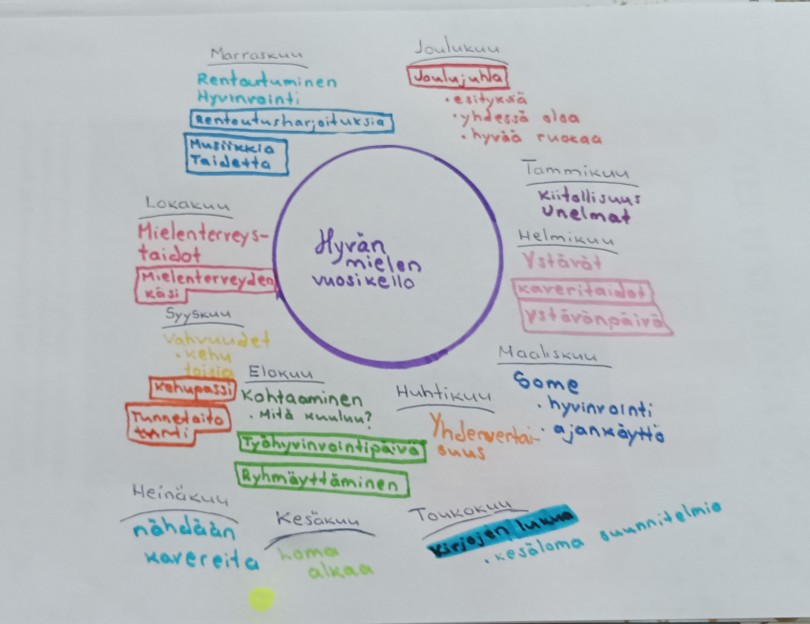 Marraskuu
Rentoutuminen
Hyvinvointi
Rentoutusharjoituksia
Musiikkia
Taidetta
Joulukuu
Joulujuhla
• esityksiä
• yhdessä oloa
• hyvää ruokaa
Tammikuu
Kiitollisuus
Unelmat
Helmikuu
Ystävät
Kaveritaidot
Ystävänpäivä
Maaliskuu
Some
• hyvinvointi
• ajankäyttö
Huhtikuu
Yhdenvertai-
suus
Toukokuu
Kirjojen lukua
• kesäloma suunnitelmia
Kesäkuu
Loma
alkaa
Heinäkuu
nähdään
kavereita
Elokuu
Kohtaaminen
• Mitä kuuluu?
Työhyvinvointipäivä
Ryhmäyttäminen
Syyskuu
Vahvuudet
• kehu
toisia
Kehupassi
Tunnetaito
Lokakuu
Mielenterveys-
taidot
Mielenterveyden
käsi
Hyvän
mielen
vuosikello